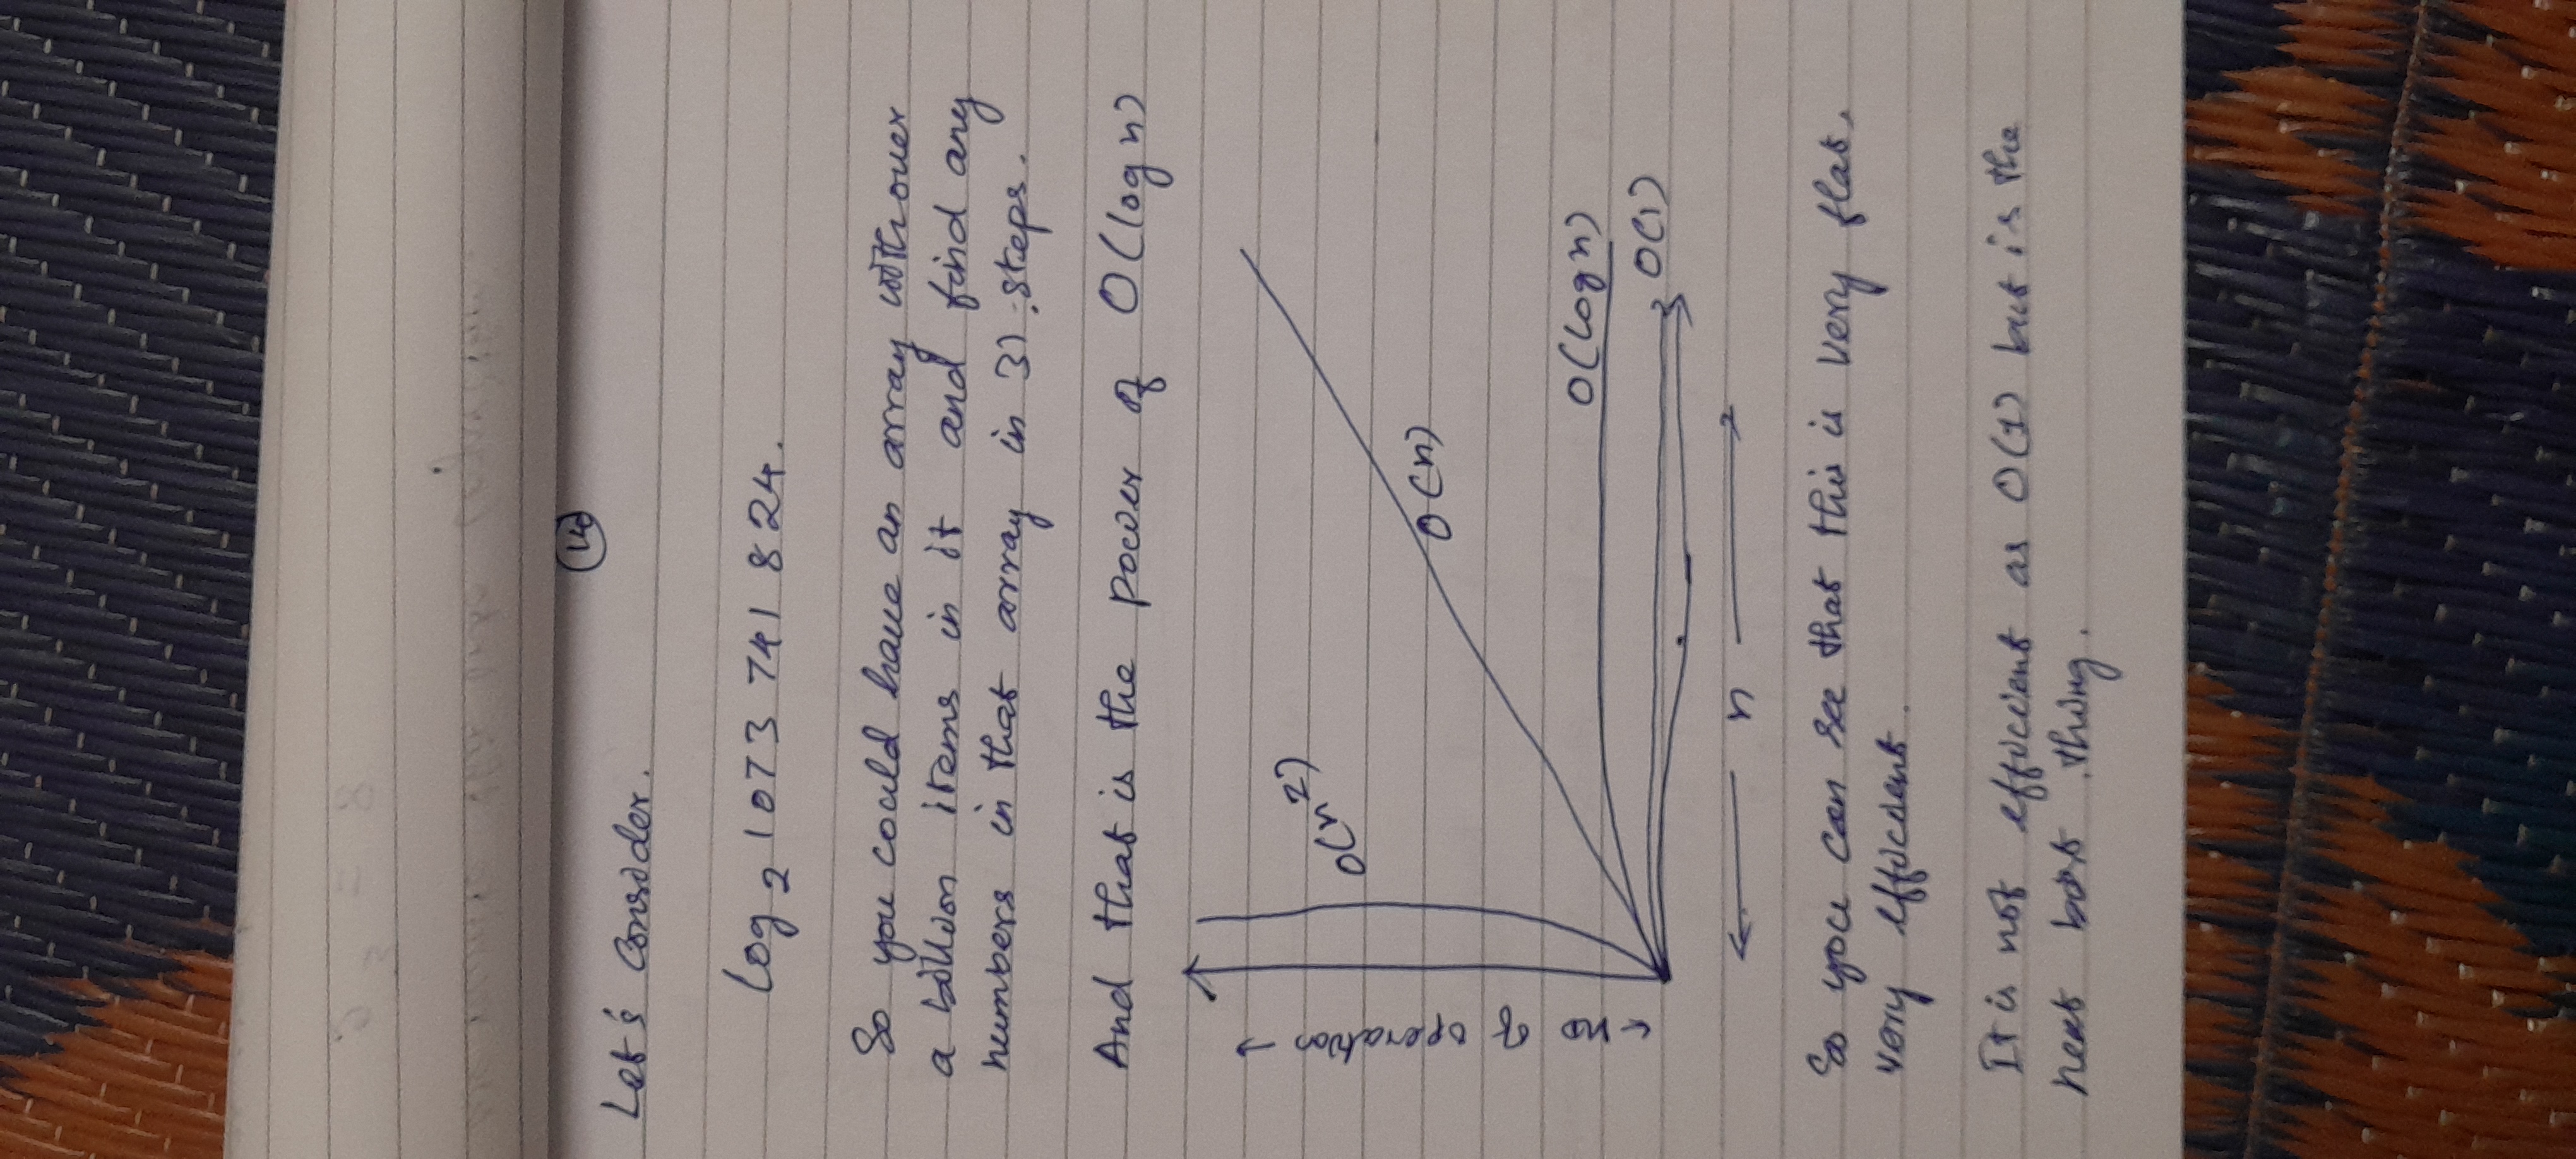 14
Let's Consider.
log 2 1073 741 824.
So you could have an array with over
a billion items in it and find any
numbers in that array in 31 steps.
And that is the power of O(log n)
← no of operation →
O(n²)
O(n)
O(log n)
O(1)
← n →
So you can see that this is very flat,
very efficient.
It is not efficient as O(1) but is the
next best thing.